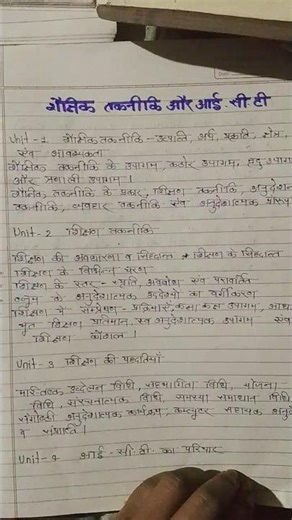 शैक्षिक तकनीकि और आई. सी. टी
Unit - 1 शैक्षिक तकनीकि - उत्पत्ति, अर्थ, प्रकृति, क्षेत्र,
एवं आवश्यकता
शैक्षिक तकनीकि के उपागम, कठोर उपागम, मृदु उपागम
और प्रणाली उपागम ।
शैक्षिक तकनीकि के प्रकार, शिक्षण तकनीकि, अनुदेशन
तकनीकि, व्यवहार तकनीकि एवं अनुदेशात्मक प्रारूप
Unit - 2 शिक्षण तकनीकि
शिक्षण की अवधारणा व सिद्धान्त शिक्षण के सिद्धान्त
शिक्षण के विभिन्न चरण
शिक्षण के स्तर - स्मृति, अवबोध एवं परावर्तित
ब्लूम के अनुदेशात्मक उद्देश्यों का वर्गीकरण
शिक्षण में सम्प्रेषण - प्रक्रियाएँ, उपागम,
शिक्षण प्रतिमान, एवं अनुदेशात्मक उपागम एवं
शिक्षण कौशल ।
Unit - 3 शिक्षण की पद्धतियाँ
उद्वेलन विधि, सहभागिता विधि, योजना
विधि, संरचनात्मक विधि, समस्या समाधान विधि
संगोष्ठी अनुदेशात्मक कार्यक्रम, कम्प्यूटर सहायक
Unit - 4 आई - सी - टी का परिचय